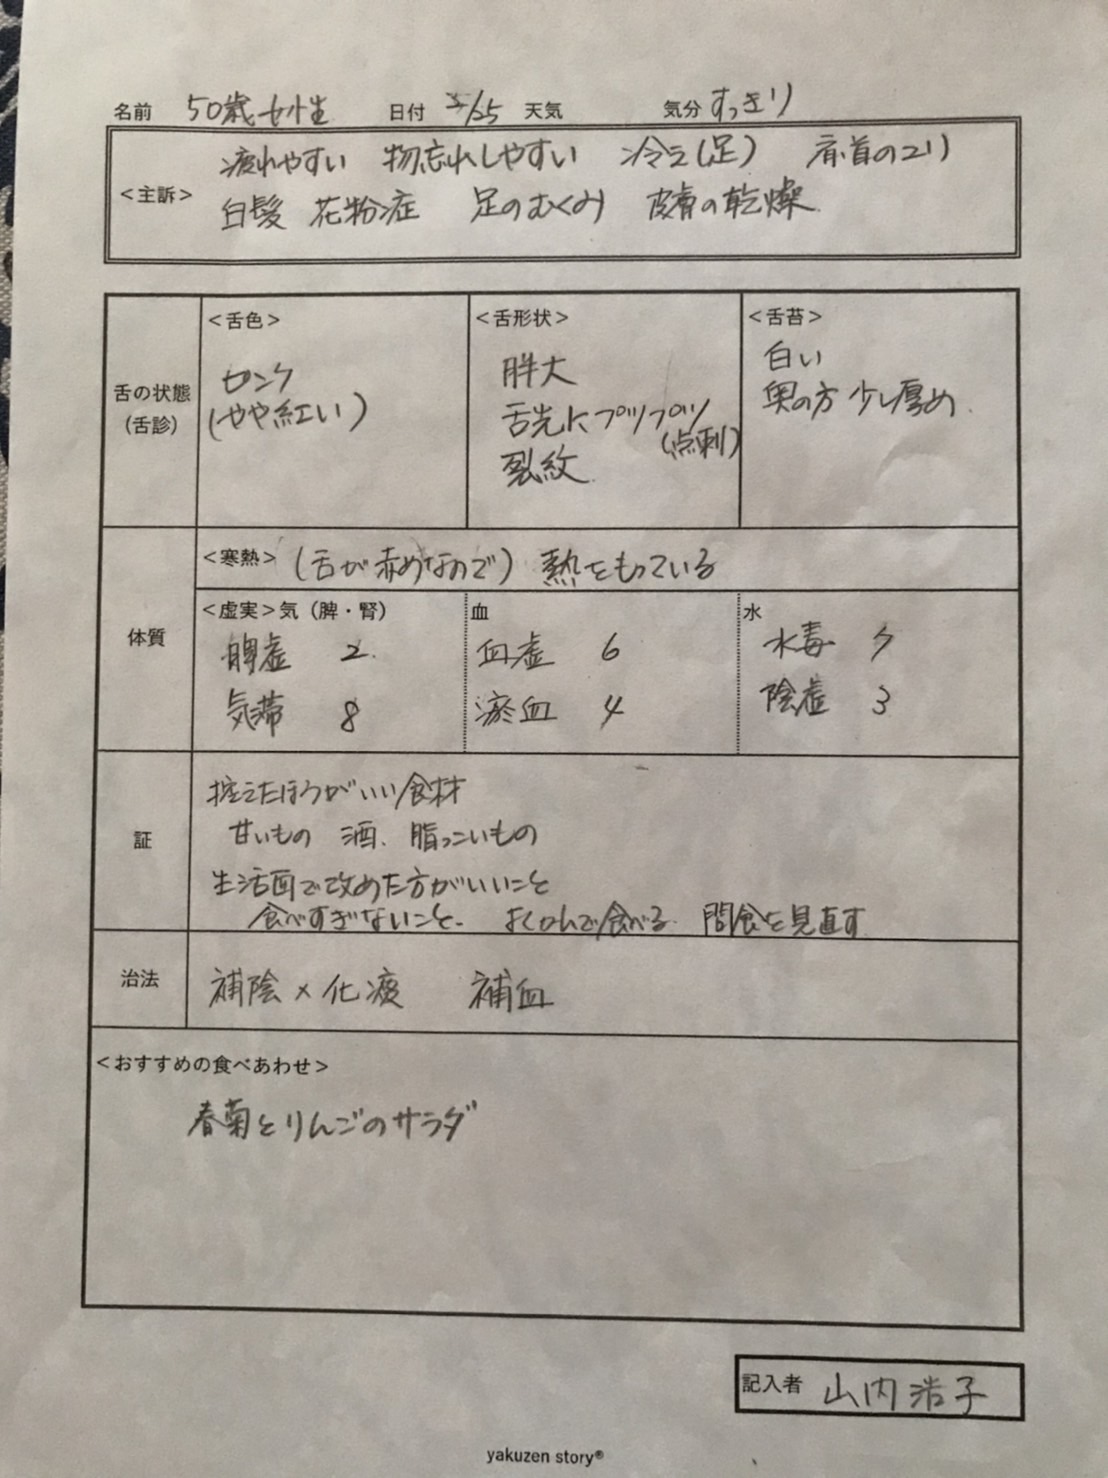 名前 50歳女性 日付 /25 天気 気分 すっきり
<主訴>
疲れやすい 物忘れしやすい 冷え(足) 肩首のコリ
白髪 花粉症 足のむくみ 皮膚の乾燥
舌の状態
(舌診)
<舌色>
ピンク
(やや紅い)
<舌形状>
胖大
舌先にプツプツ
(点刺)
裂紋
<舌苔>
白い
奥の方 少し厚め
体質
<寒熱> (舌が赤めなので) 熱をもっている
<虚実>気(脾・腎)
脾虚 2
気滞 8
血
血虚 6
瘀血 4
水
水毒
陰虚 3
証
控えたほうがいい食材
甘いもの 酒、脂っこいもの
生活面で改めた方がいいこと
食べすぎないこと。 よくかんで食べる 間食を見直す
治法
補陰×化痰 補血
<おすすめの食べあわせ>
春菊とりんごのサラダ
記入者 山内浩子
yakuzen story®